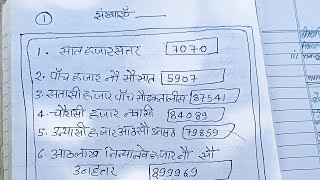 ①
संख्याएँ
1. सात हजार सत्तर 7070
2. पाँच हजार नौ सौ सात 5907
3. सतासी हजार पाँच सौ इकतालीस 87541
4. चौरासी हजार नवासी 84089
5. उन्यासी हजार आठ सौ उनसठ 79859
6. आठ लाख निन्यानवे हजार नौ सौ
उनहत्तर 899969